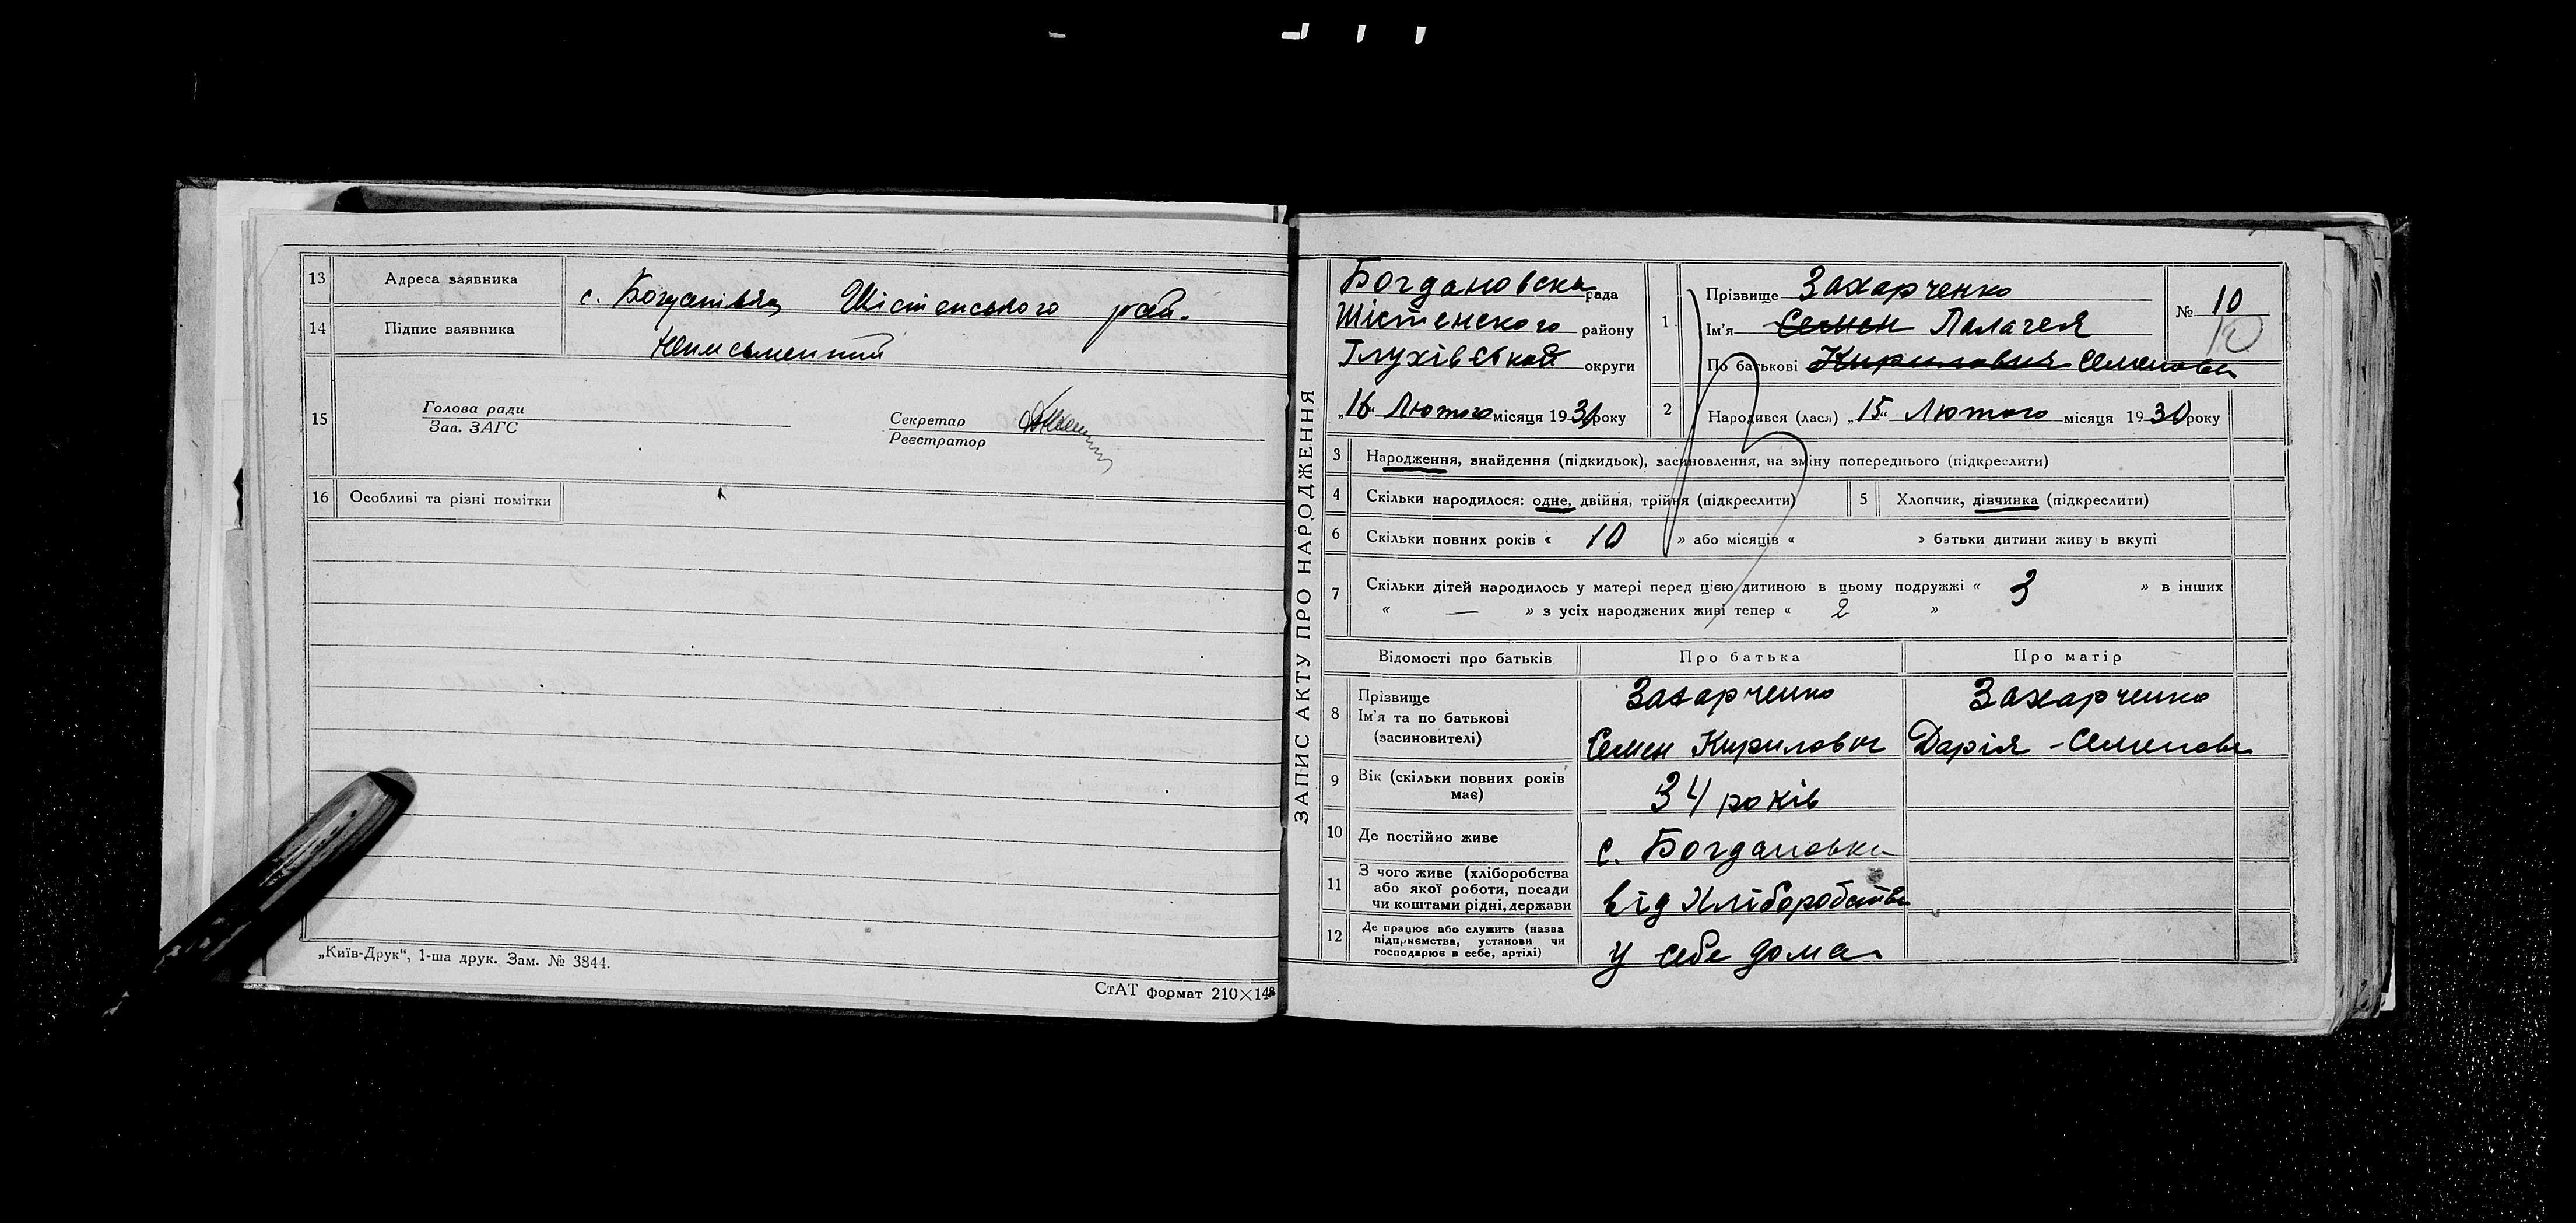 13 Адреса заявника с. Богданівка Шістенського рай.
14 Підпис заявника Неписьменний
15 Голова ради Секретар
Зав. ЗАГС Реєстратор
16 Особливі та різні помітки
„Київ-Друк“, 1-ша друк. Зам. № 3844.
СтАТ формат 210×148
ЗАПИС АКТУ ПРО НАРОДЖЕННЯ
Богдановска рада
Шістенского району
Глухівської округи
„16“ Лютого місяця 1930 року
1 Прізвище Захарченко
Ім'я Семен Палагея
По батькові Кирилович Семенова
№ 10
10
2 Народився (лася) „15“ Лютого місяця 1930 року
3 Народження, знайдення (підкидьок), засиновлення, на зміну попереднього (підкреслити)
4 Скільки народилося: одне, двійня, трійня (підкреслити) 5 Хлопчик, дівчинка (підкреслити)
6 Скільки повних років « 10 » або місяців « » батьки дитини живуть вкупі
7 Скільки дітей народилось у матері перед цією дитиною в цьому подружжі « 3 » в інших
« — » з усіх народжених живі тепер « 2 »
Відомості про батьків Про батька Про матір
8 Прізвище Захарченко Захарченко
Ім'я та по батькові
(засиновителі) Семен Кирилович Дарія - Семенова
9 Вік (скільки повних років
має) 34 років
10 Де постійно живе с. Богдановка
11 З чого живе (хліборобства
або якої роботи, посади
чи коштами рідні, держави від Хліборобства
12 Де працює або служить (назва
підприємства, установи чи
господарює в себе, артілі) у себе дома